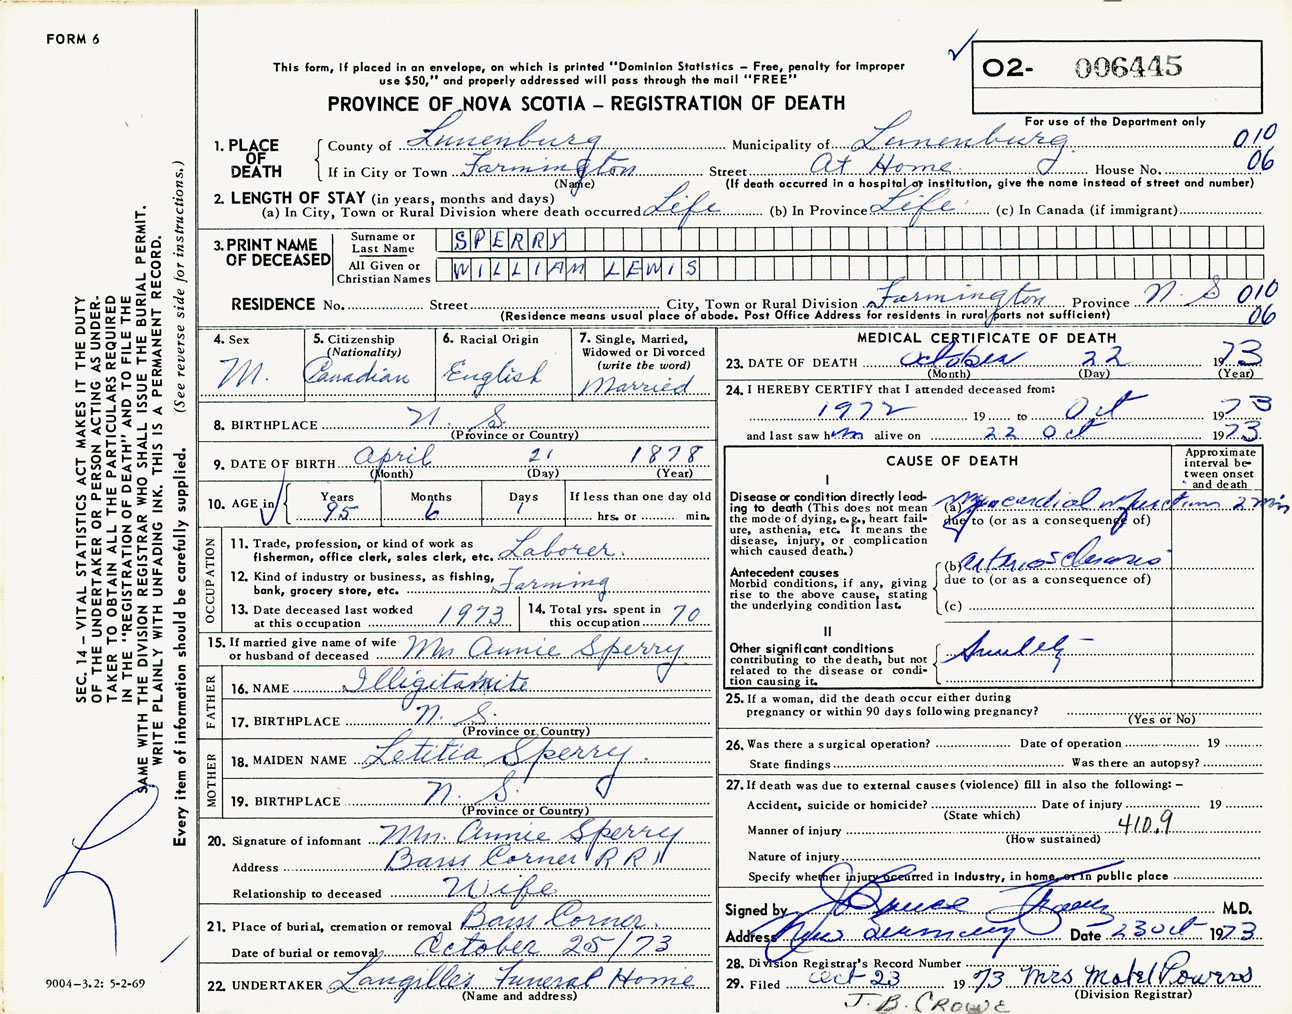 FORM 6
This form, if placed in an envelope, on which is printed "Dominion Statistics – Free, penalty for improper
use $50," and properly addressed will pass through the mail "FREE"
PROVINCE OF NOVA SCOTIA – REGISTRATION OF DEATH
O2- 006445
For use of the Department only
1. PLACE OF DEATH
County of Lunenburg Municipality of Lunenburg 010
If in City or Town Farmington Street At Home House No. 06
(Name) (If death occurred in a hospital or institution, give the name instead of street and number)
2. LENGTH OF STAY (in years, months and days)
(a) In City, Town or Rural Division where death occurred Life (b) In Province Life (c) In Canada (if immigrant)
3. PRINT NAME OF DECEASED
Surname or Last Name SPERRY
All Given or Christian Names WILLIAM LEWIS
RESIDENCE No. Street City, Town or Rural Division Farmington Province N. S 010
(Residence means usual place of abode. Post Office Address for residents in rural parts not sufficient) 06
4. Sex
M.
5. Citizenship
(Nationality)
Canadian
6. Racial Origin
English
7. Single, Married,
Widowed or Divorced
(write the word)
Married
8. BIRTHPLACE N. S.
(Province or Country)
9. DATE OF BIRTH April 21 1878
(Month) (Day) (Year)
10. AGE in
Years Months Days If less than one day old
95 6 1 hrs. or min.
OCCUPATION
11. Trade, profession, or kind of work as
fisherman, office clerk, sales clerk, etc. Laborer.
12. Kind of industry or business, as fishing,
bank, grocery store, etc. Farming
13. Date deceased last worked
at this occupation 1973
14. Total yrs. spent in
this occupation 70
15. If married give name of wife
or husband of deceased Mrs Annie Sperry
FATHER
16. NAME Illigitamite
17. BIRTHPLACE N. S.
(Province or Country)
MOTHER
18. MAIDEN NAME Letitia Sperry.
19. BIRTHPLACE N. S.
(Province or Country)
20. Signature of informant Mrs. Annie Sperry
Address Barss Corner R R 1
Relationship to deceased Wife
21. Place of burial, cremation or removal Barss Corner.
Date of burial or removal October 25/73
22. UNDERTAKER Langilles Funeral Home
(Name and address)
MEDICAL CERTIFICATE OF DEATH
23. DATE OF DEATH October 22 1973
(Month) (Day) (Year)
24. I HEREBY CERTIFY that I attended deceased from:
1972 19 to Oct 1973
and last saw him alive on 22 Oct 1973
CAUSE OF DEATH
Approximate
interval be-
tween onset
and death
I
Disease or condition directly lead-
ing to death (This does not mean
the mode of dying, e.g., heart fail-
ure, asthenia, etc. It means the
disease, injury, or complication
which caused death.)
(a) Myocardial infarction 2 min
due to (or as a consequence of)
Antecedent causes
Morbid conditions, if any, giving
rise to the above cause, stating
the underlying condition last.
(b) arteriosclerosis
due to (or as a consequence of)
(c)
II
Other significant conditions
contributing to the death, but not
related to the disease or condi-
tion causing it.
Senility
25. If a woman, did the death occur either during
pregnancy or within 90 days following pregnancy?
(Yes or No)
26. Was there a surgical operation? Date of operation 19
State findings Was there an autopsy?
27. If death was due to external causes (violence) fill in also the following: –
Accident, suicide or homicide? Date of injury 19
(State which)
Manner of injury 410.9
(How sustained)
Nature of injury
Specify whether injury occurred in industry, in home, or in public place
Signed by J Bruce M.D.
Address New Germany Date 23 Oct 1973
28. Division Registrar's Record Number
29. Filed Oct 23 1973 Mrs Mabel Powers
(Division Registrar)
J. B. CROWE
SEC. 14 – VITAL STATISTICS ACT MAKES IT THE DUTY
OF THE UNDERTAKER OR PERSON ACTING AS UNDER-
TAKER TO OBTAIN ALL THE PARTICULARS REQUIRED
IN THE "REGISTRATION OF DEATH" AND TO FILE THE
SAME WITH THE DIVISION REGISTRAR WHO SHALL ISSUE THE BURIAL PERMIT.
WRITE PLAINLY WITH UNFADING INK. THIS IS A PERMANENT RECORD.
Every item of information should be carefully supplied. (See reverse side for instructions.)
9004-3.2: 5-2-69